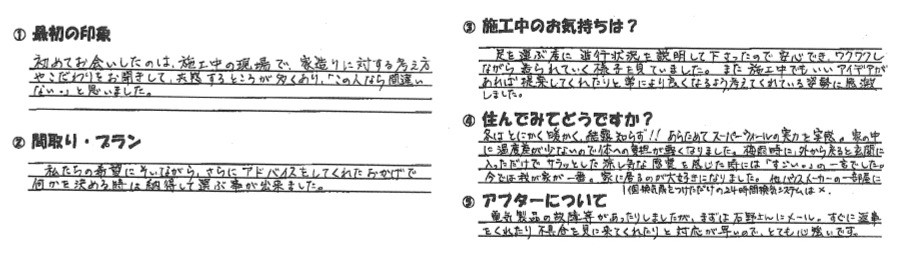 ① 最初の印象
初めてお会いしたのは、施工中の現場で、家造りに対する考え方
やこだわりをお聞きして、共感するところが多くあり、「この人なら間違い
ない。」と思いました。
② 間取り・プラン
私たちの希望にそいながら、さらにアドバイスをしてくれたおかげで
何かを決める時は納得して選ぶ事が出来ました。
③ 施工中のお気持ちは？
足を運ぶ度に進行状況を説明して下さったので安心でき、ワクワクし
ながら造られていく様子を見ていました。また施工中でもいいアイデアが
あれば提案してくれたりと常により良くなるよう考えてくれている姿勢に感激
しました。
④ 住んでみてどうですか？
冬はとにかく暖かく、結露知らず!! あらためてスーパーウォールの実力を実感。家の中
に温度差が少ないので体への負担が軽くなりました。梅雨時に、外から来ると玄関に
入っただけでサラッとした 感覚を感じた時には「すごい。」の一言でした。
今では我が家が一番。家に居るのが大好きになりました。他ハウスメーカーの一部屋に
1個換気扇をつけただけの24時間換気システムは×.
⑤ アフターについて
電気製品の故障等があったりしましたが、まずは石野さんにメール。すぐに返事
をくれたり不具合を見に来てくれたりと対応が早いので、とても心強いです。